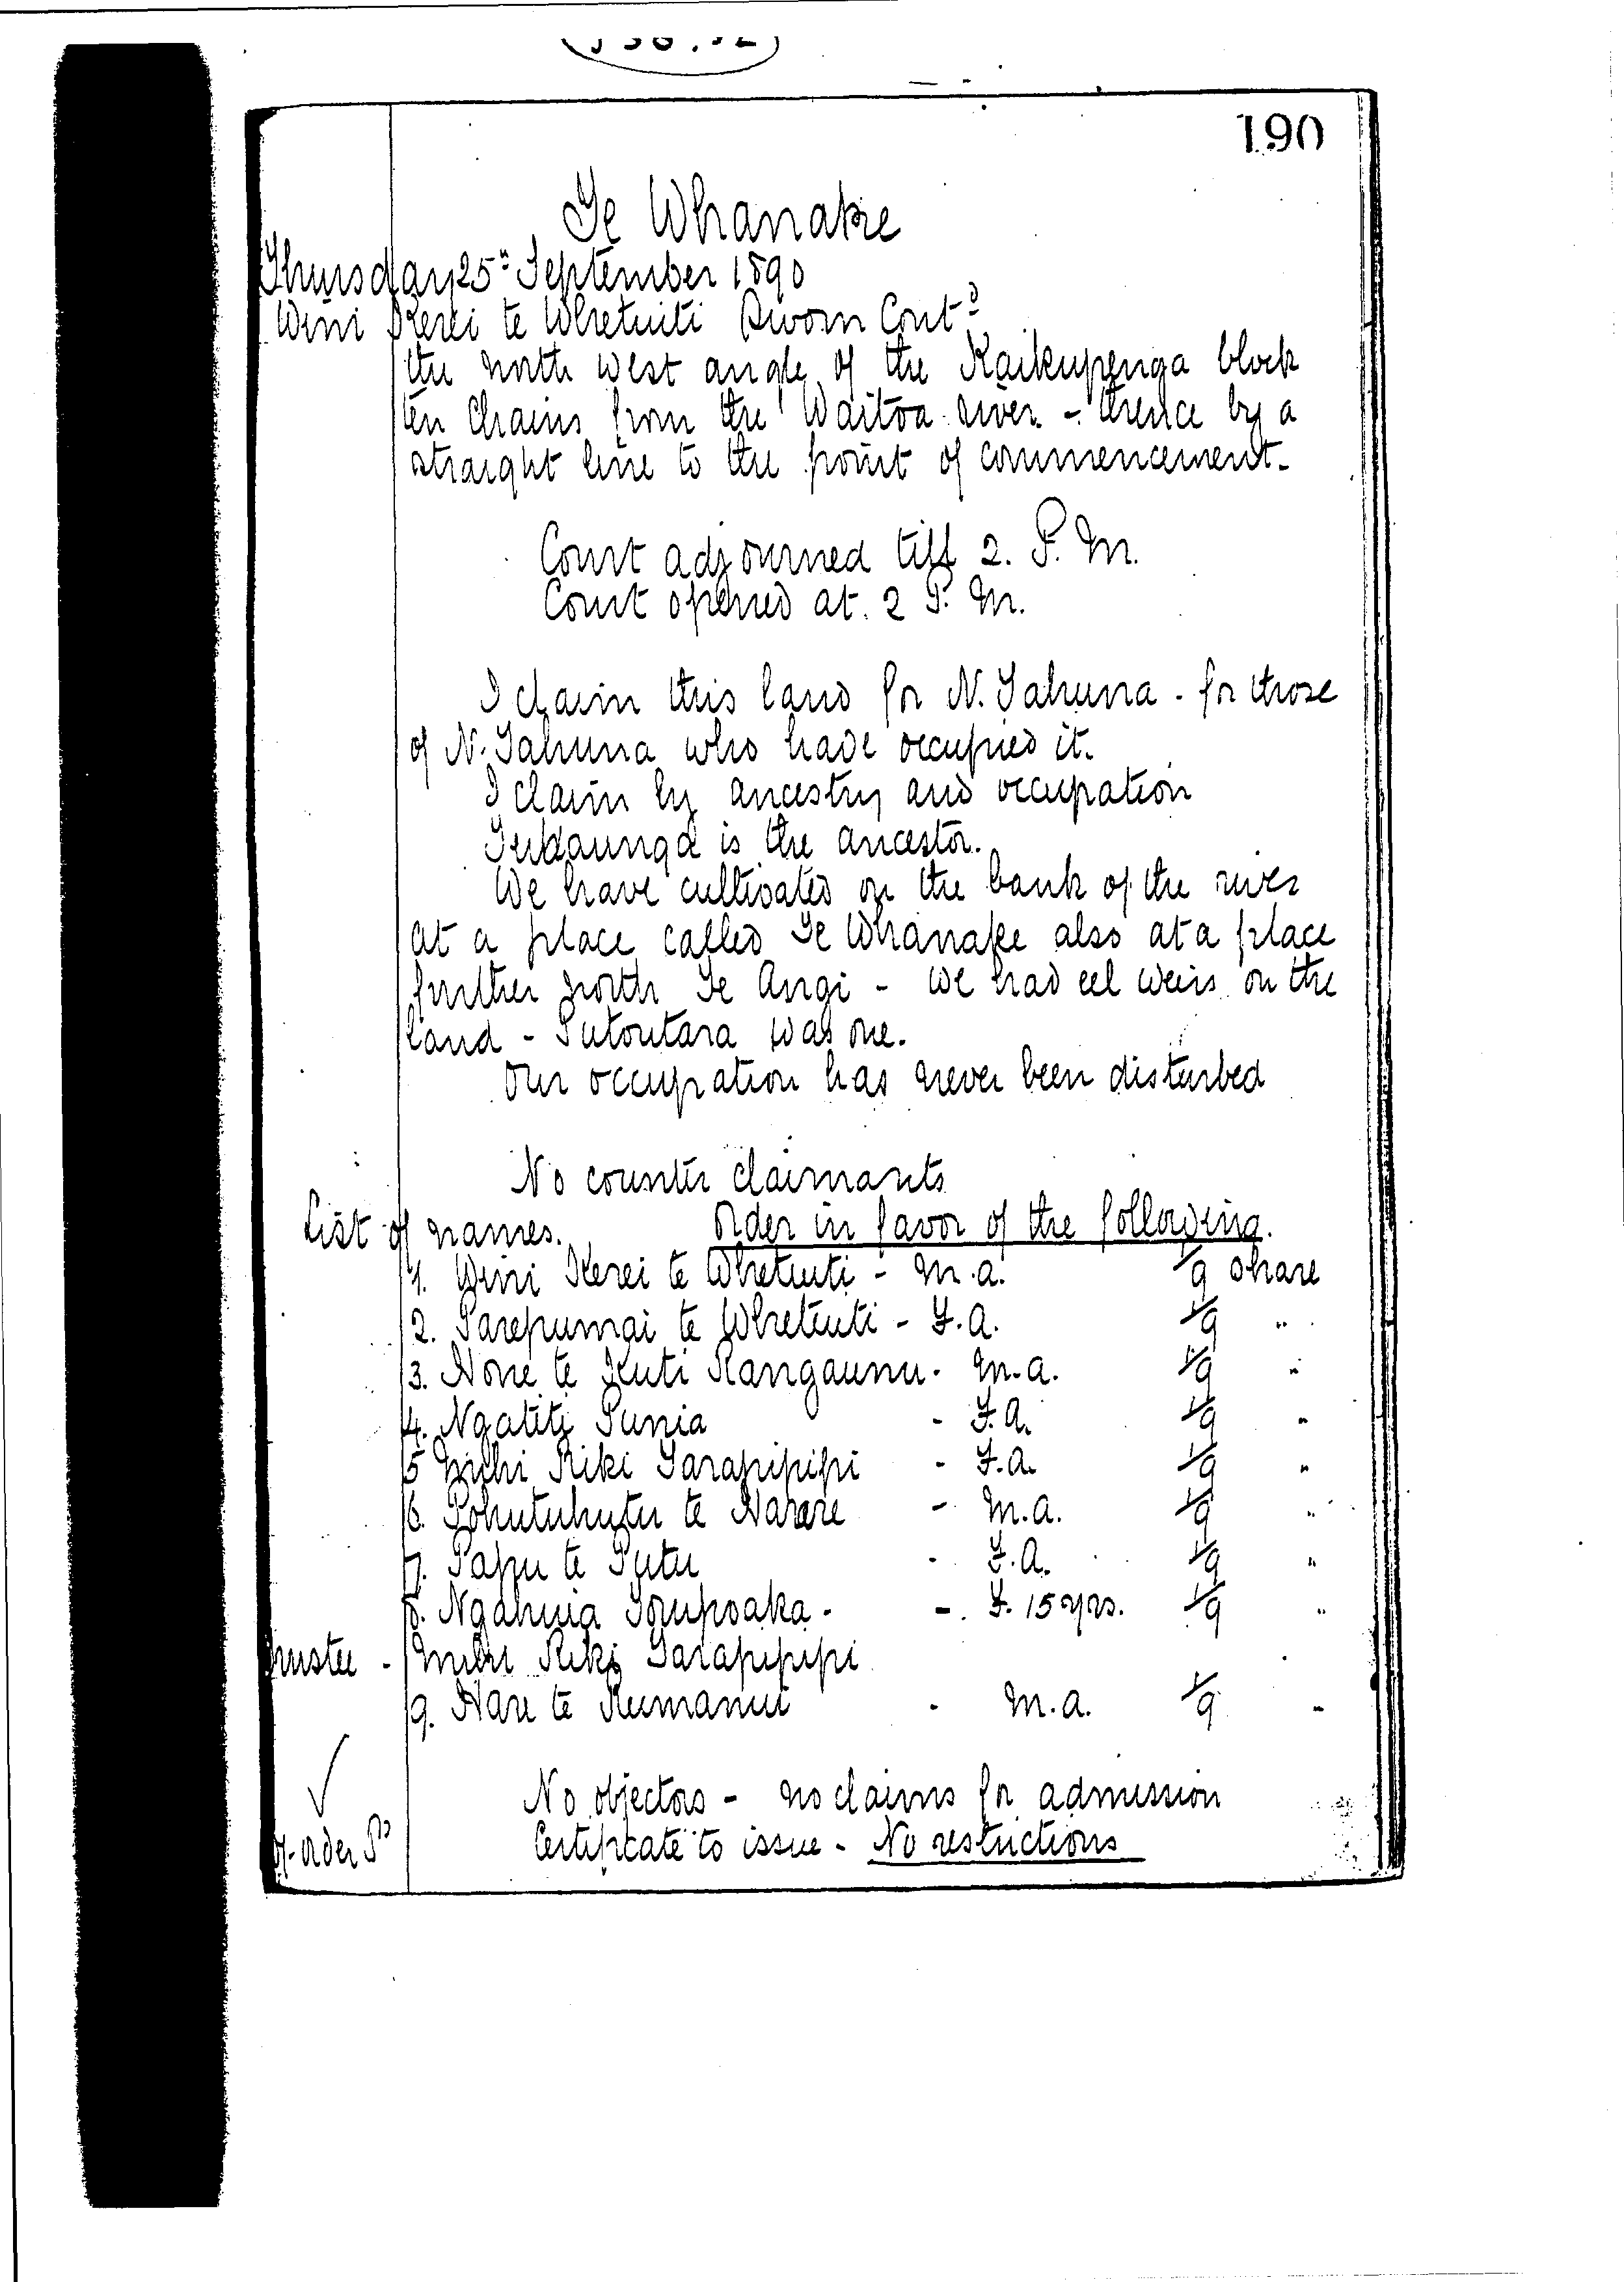 190
Te Whanake
Thursday 25th September 1890
Wini Kerei te Whetuiti Sworn Contd
the north west angle of the Kaikupenga block
ten chains from the Waitoa river - thence by a
straight line to the point of commencement.
Court adjourned till 2. P. M.
Court opened at. 2 P. M.
I claim this land for N. Tahuna - for those
of N. Tahuna who have occupied it.
I claim by ancestry and occupation
is the ancestor.
We have cultivated on the bank of the river
at a place called Te Whanake also at a place
further north Te Angi - We had eel weirs on the
land - Putoutara was one.
Our occupation has never been disturbed
No counter claimants
List of names. Order in favor of the following.
1. Wini Kerei te Whetuiti - M.a. 1/9 share
2. Parepumai te Whetuiti - F.A. 1/9 "
3. None te Kuti Rangaunu - M.a. 1/9 "
4. Ngatiti Punia - F.A. 1/9 "
5 Riki Tarapipipi - F.A. 1/9 "
6. Pohutuhutu te Harere - M.a. 1/9 "
7. Papu te Putu - F.A. 1/9 "
8. Ngahuia Toupoaka - F. 15 yrs. 1/9 "
Trustee - Riki Tarapipipi
9. Hare te Rumanui - M.a. 1/9 "
No objectors - no claims for admission
Certificate to issue - No restrictions
order